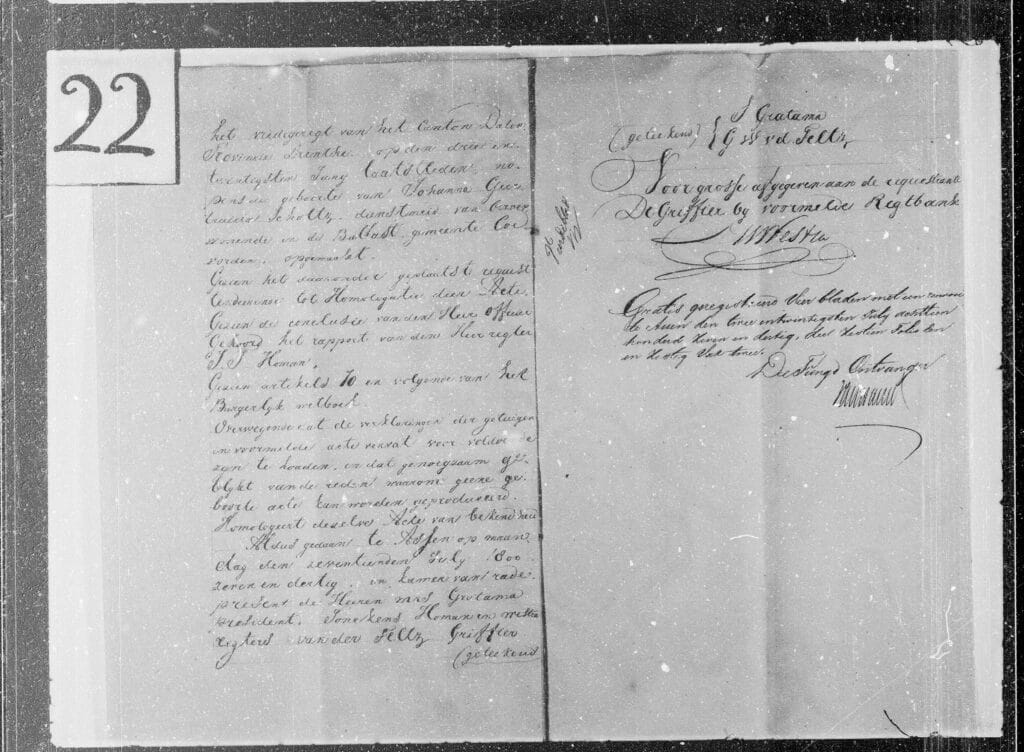 22
het vredegerigt van het Canton Dalen
Provincie Drenthe, op den drie en
twentigsten Juny laatstleden, no-
pens de geboorte van Johanna Geer-
truida Scholtz, dienstmeid van beroep
wonende in de Ballast, gemeente Coe-
vorden, opgemaakt.
Gezien het daaronder geplaatst request
tenderende tot Homologatie dier Acte.
Gezien de conclusie van den Heer Officier
Gehoord het rapport van den Heer regter
J. J. Homan.
Gezien artikels 70 en volgende van het
Burgerlyk wetboek.
Overwegende dat de verklaringen der getuigen
in voormelde acte vervat voor voldoende
zyn te houden, en dat genoegzaam ge-
blykt van de reden waarom geene ge-
boorte acte kan worden geproduceerd.
Homologeert dezelve Acte van bekendheid
Aldus gedaan te Assen op maan-
dag den zeventienden July 1800
zeven en dertig, in kamer van rade.
present de Heeren mrs Gratama
president, Tonckens Homan en Westra
regters van der Feltz Griffier
(geteekend
(geteekend) { S Gratama
G W v d Feltz
Voor grosse afgegeven aan de requestrante
De Griffier by voormelde Regtbank
WWestra
Gratis geregistreerd vier bladen met een renvooi
te Assen den twee en twintigsten July achttien
honderd zeven en dertig, deel zestien Folio een
en zestig Vak twee.
De Fungd Ontvanger